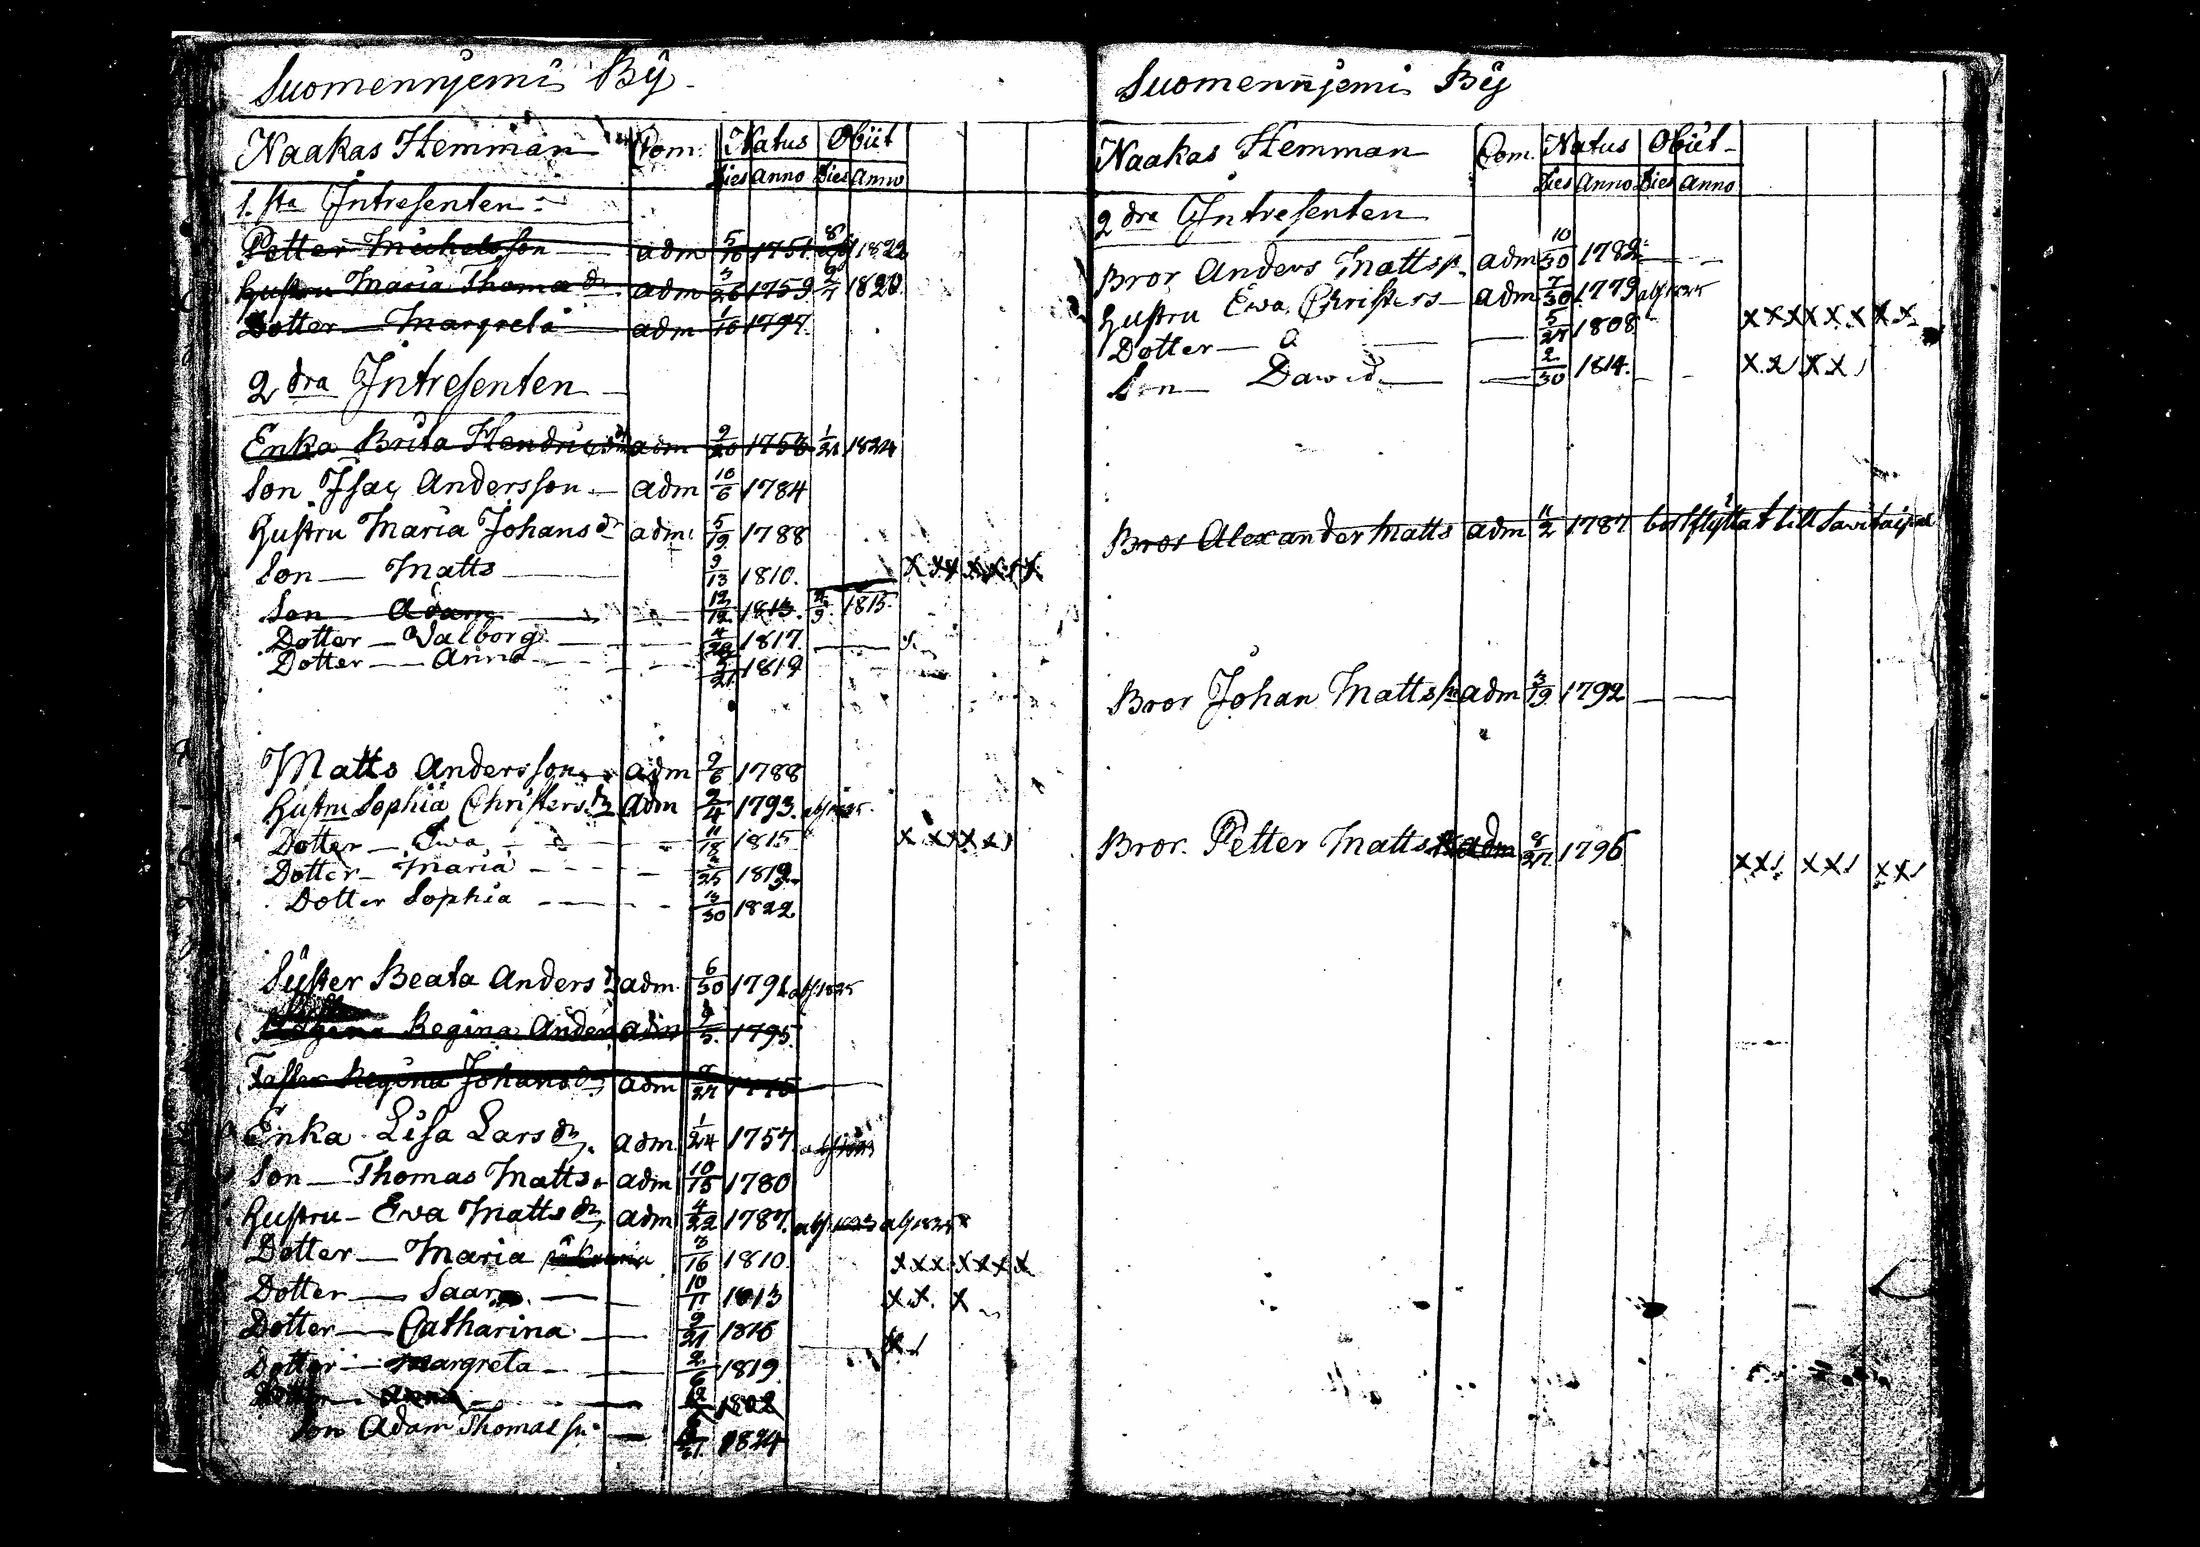 Suomennjemi Bÿ
Naakas Hemman Com: Natus Obiit
Dies Anno Dies Anno
1. sta Intresenten
Petter Michelsson adm 5/10 1751 1822
Hustru Maria Thomæ dr adm 3/26 1759 1820
Dotter Margreta adm 1/10 1797
2 dra Intresenten
Enka Brita Hendricsdr adm 9/20 1758 1/21 1824
Son Isac Andersson adm 10/6 1784
Hustru Maria Johans dr adm: 5/19 1788
Son Matts 9/13 1810. x x x x x x x
Son Adam 12/12 1813. 1815.
Dotter Valborg 1817.
Dotter Anna 1819
Matts Andersson adm 9/6 1788
Hustru Sophia Christersdr adm 9/4 1793.
Dotter Ewa 11/18 1815
Dotter Maria 1819
Dotter Sophia 3/30 1822
Syster Beata Anders dr adm. 6/30 1791 abs 1825
Regina Anders adm 1795.
Faster Regina Johansdr adm
Enka Lisa Lars dr. adm. 1/24 1757.
Son Thomas Matts adm 10/15 1780
Hustru Ewa Matts dr adm 4/22 1787.
Dotter Maria 3/16 1810. x x x x x x x
Dotter Saara 10/11 1813 x x. x
Dotter Catharina 9/21 1816
Dotter Margreta 2/6 1819
Dotter 1822
Son Adam Thomas sn 1824
Suomennjemi Bÿ
Naakas Hemman Com. Natus Obiit
Dies Anno Dies Anno
2 dra Intresenten
Bror Anders Matts adm 10/30 1782
Hustru Ewa Christers adm 7/30 1779 abs 1825
Dotter 5/27 1808 x x x x x x x x
Son Dawid 2/30 1814.
Bror Alexander Matts adm 11/2 1787 bortflyttat till Savitaipal
Bror Johan Matts sn adm 3/19 1792
Bror. Petter Matts adm 1796